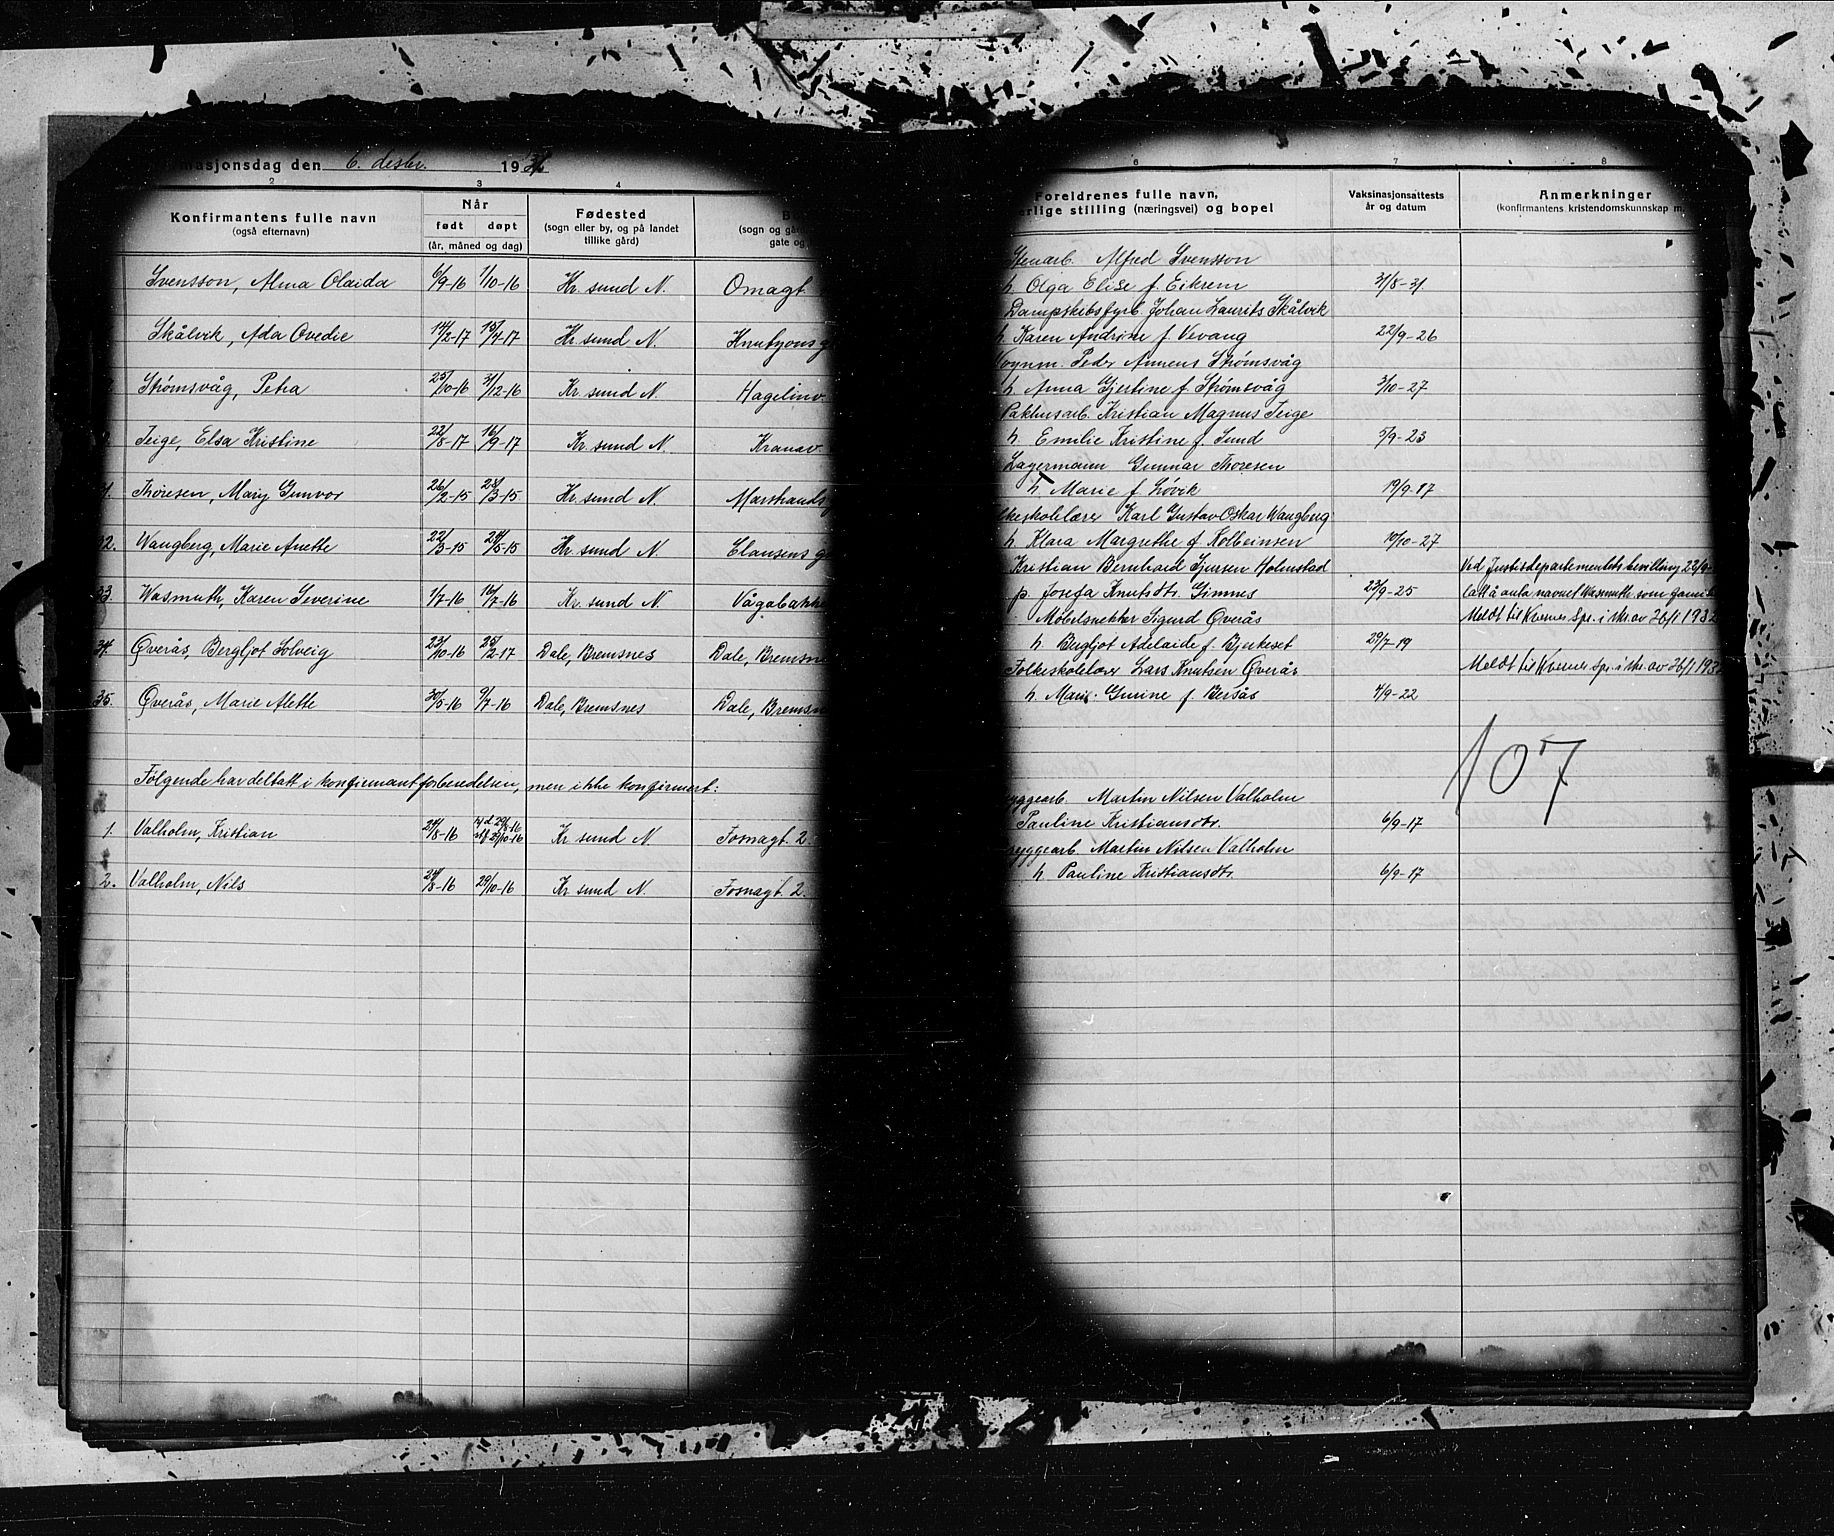 masjonsdag den 6. desbr. 1931
2 3 4
Konfirmantens fulle navn
(også efternavn)
Når
født døpt
(år, måned og dag)
Fødested
(sogn eller by, og på landet
tillike gård)
(sogn og går
gate og
Svensson, Alma Olaida 6/9-16 1/10-16 Kr.sund N. Omagt.
Skålvik, Ada Ovedie 14/2-17 15/4-17 Kr.sund N. Knutzonsg
Strømsvåg, Petra 25/10-16 31/12-16 Kr.sund N. Hagelinv.
Teige, Elsa Kristine 22/8-17 16/9-17 Kr.sund N. Kranav.
Thoresen, Mary Gunvor 26/2-15 28/3-15 Kr.sund N.
32. Wangberg, Marie Anette 22/3-15 24/5-15 Kr.sund N. Clausens g
33. Wasmuth, Karen Severine 1/7-16 16/7-16 Kr.sund N. Vågabakk
34. Øverås, Bergljot Solveig 23/10-16 25/2-17 Dale, Bremsnes Dale, Bremsn
35. Øverås, Marie Alette 30/5-16 9/7-16 Dale, Bremsnes Dale, Bremsn
Følgende har deltatt i konfirmantforberedelsen, men ikke konfirmert:
1. Valholm, Kristian 24/8-16 Kr.sund N. Fosnagt. 2.
2. Valholm, Nils 24/8-16 29/10-16 Kr.sund N. Fosnagt. 2.
6 7 8
Foreldrenes fulle navn,
erlige stilling (næringsvei) og bopel
Vaksinasjonsattests
år og datum
Anmerkninger
(konfirmantens kristendomskunnskap m.
Stenarb. Alfred Svensson
h. Olga Elise f. Eikrem 31/8-31
Dampskibsfyrb. Johan Laurits Skålvik
h. Karen Andrine f. Vevang 22/9-26
Vognm. Peder Annens Strømsvåg
h. Anna Gjertine f. Strømsvåg 3/10-27
Pakhusarb. Kristian Magnus Teige
h. Emilie Kristine f. Sund 5/9-23
Lagermann Gunnar Thoresen
h. Marie f. Løvik 19/9-17
lkeskolelærer Karl Gustav Oskar Wangberg
h. Klara Margrethe f. Kolbeinsen 10/10-27
Kristian Bernhard Gjersen Holmstad Ved Justisdepartementets bevilling 22/9
p. Josefa Knutsdtr. Gimnes 23/9-25 latt å anta navnet Wasmuth som
Møbelsnekker Sigurd Øverås Meldt til Kvernes Spr. i skr. av 26/1 1932
h. Bergljot Adelaide f. Bjerkeset 29/7-19
Folkeskolelærer Lars Knutsen Øverås Meldt til Kvernes Spr. i skr. av 26/1 193
h. Marie Gurine f. Bersås 4/9-22
107
yggearb. Martin Nilsen Valholm
Pauline Kristiansdtr. 6/9-17
yggearb. Martin Nilsen Valholm
h. Pauline Kristiansdtr. 6/9-17